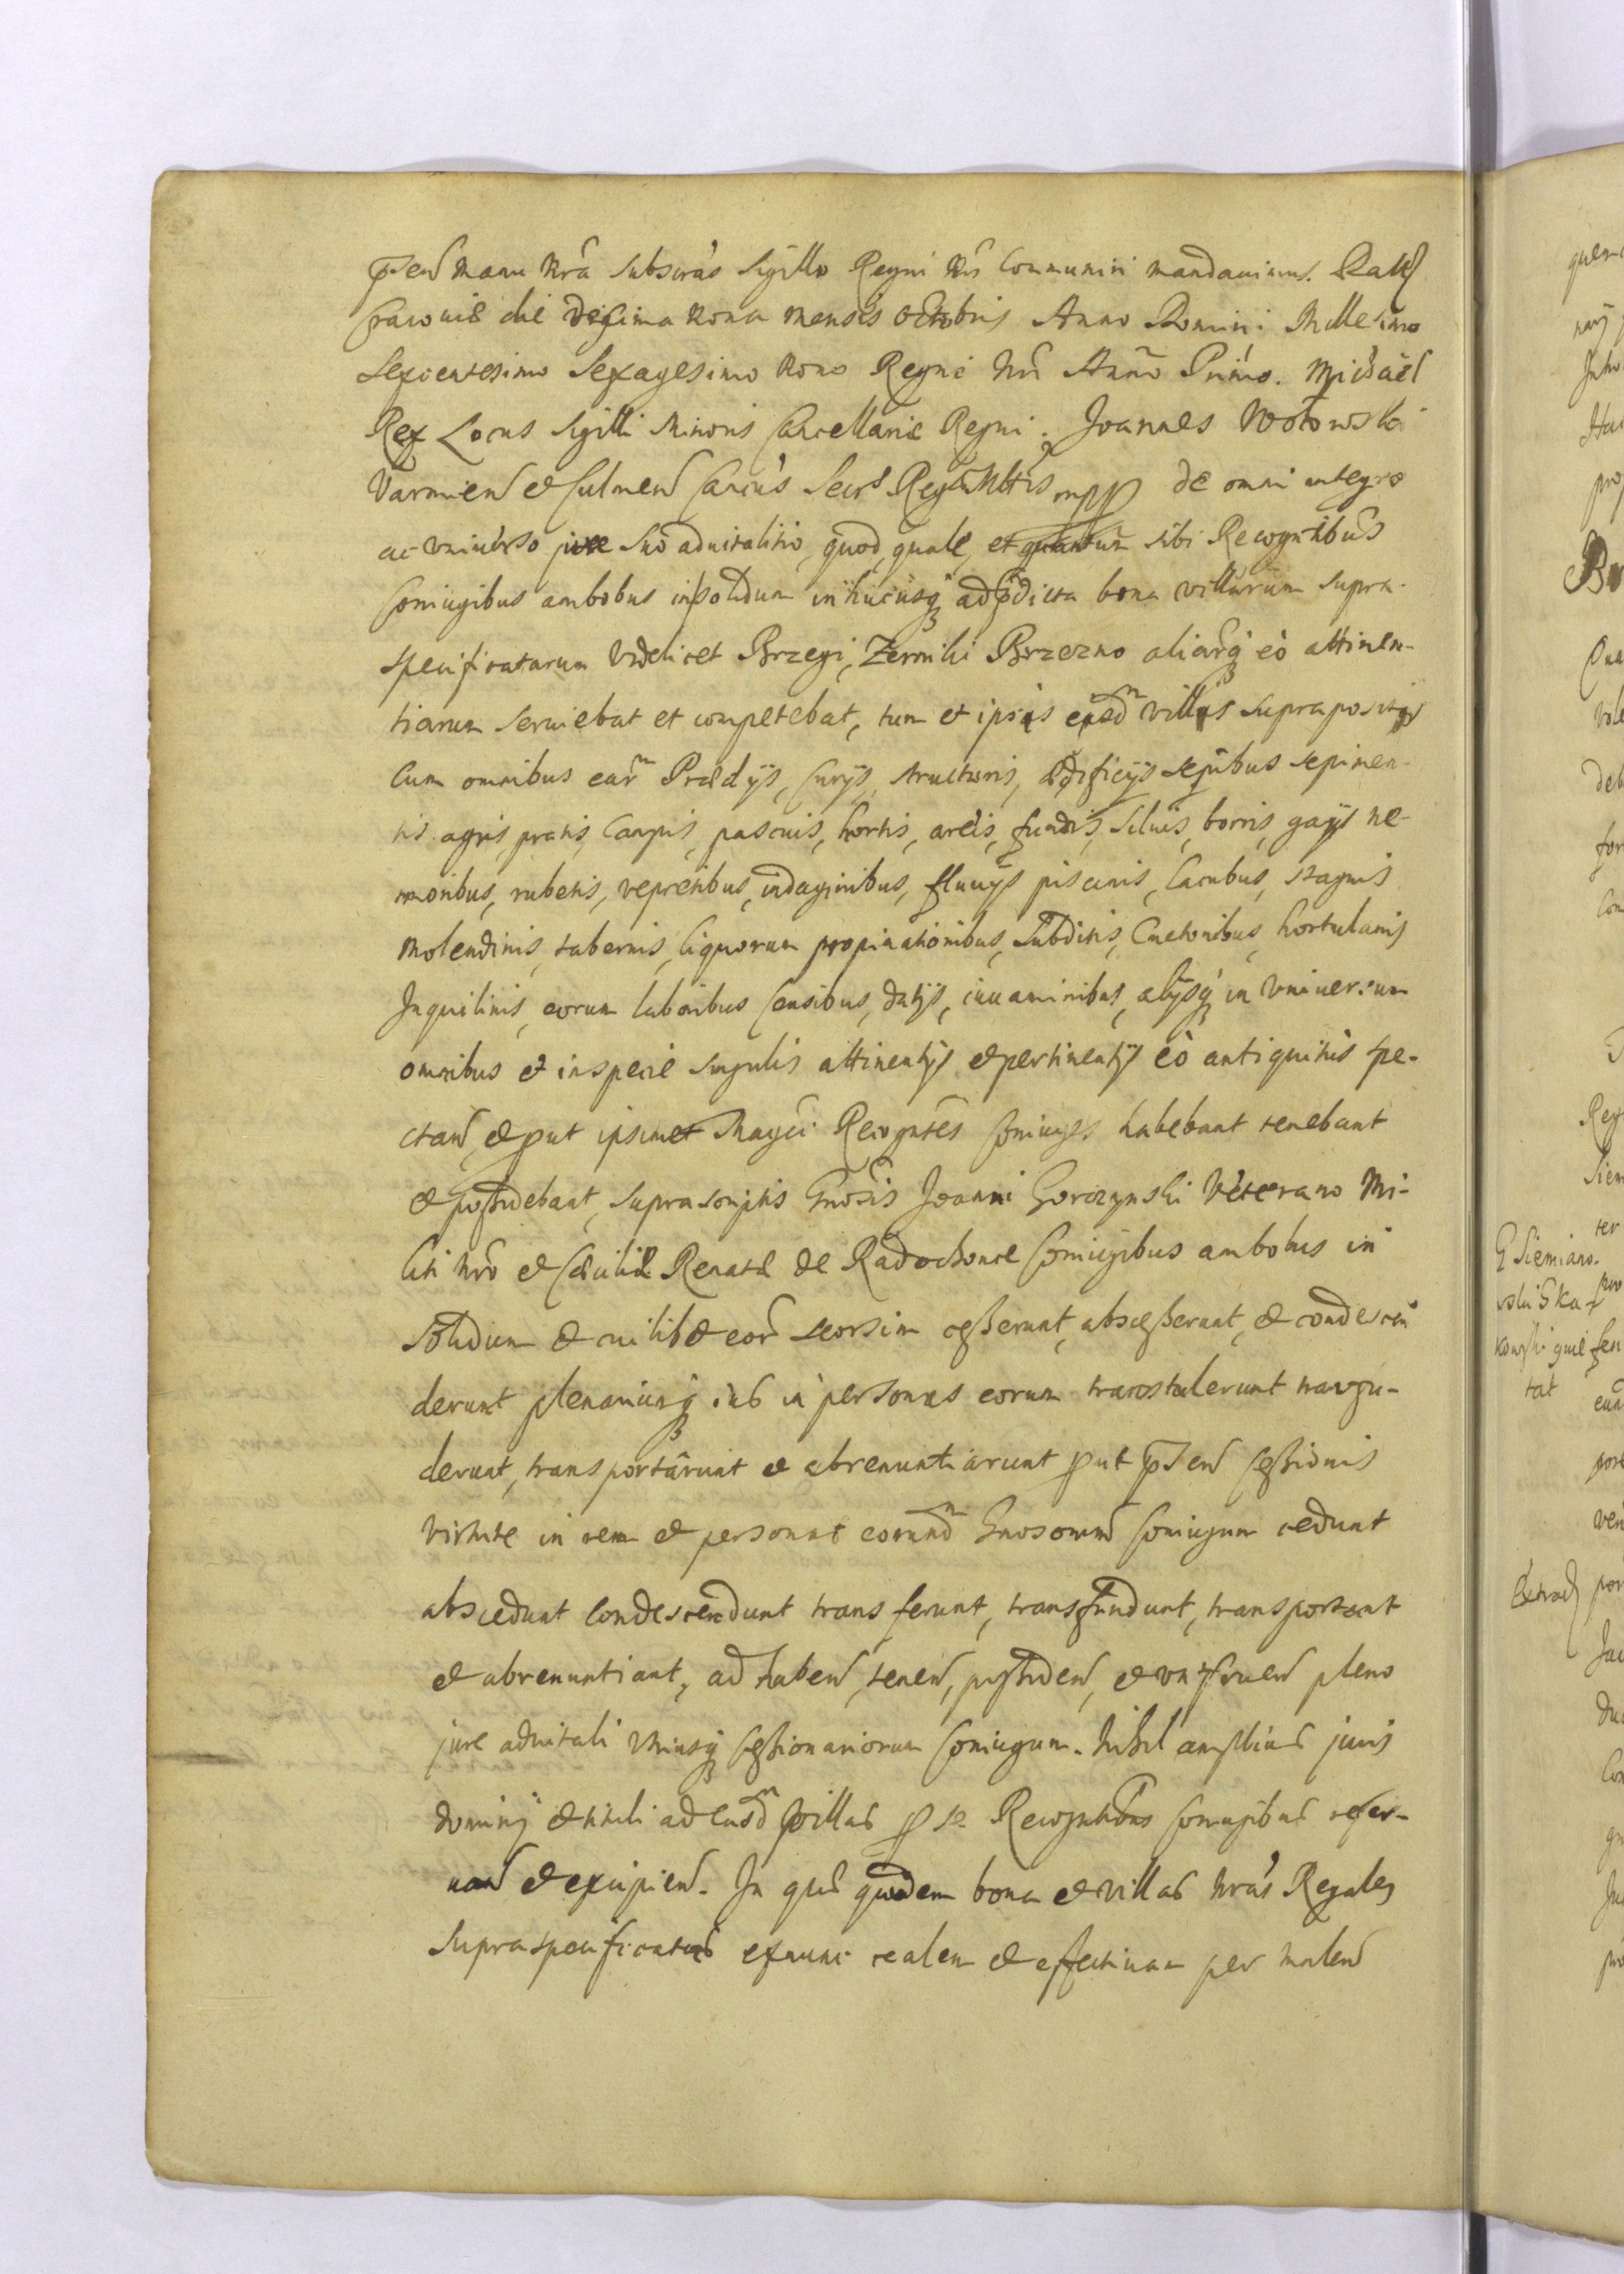 pnsen manu nra subscrās sigillo Regni nri Communiri mandavimus. Datt
Cracoviæ die decima nona mensis octobris Anno Domini Millesimo
Sexcentesimo Sexagesimo nono Regni nri Anno Primo. Michael
Rex Locus Sigilli Minoris Cancellariæ Regni. Joannes Wołowski
Varmien et Culmen Cancus Secrs Regiæ Mttis mpp de omni integro
ac universo jure suo advitalitio, quod, quale, et quantum sibi Recognibus
Coniugibus ambobus insolidum inhucusq ad pdicta bona villarum supra-
specificatarum videlicet Brzegi, Zerniki Brzezno aliarq eò attinen-
tiarum serviebat et competebat, tum et ipsis eisdm villis suprapositis
Cum omnibus earm Prædijs, Curijs, structuris, ædificijs sepibus sepimen-
tis agris, pratis, Campis, pascuis, hortis, areis, fundis, silvis, borris, gaijs ne-
moribus, rubetis, vepretibus, indaginibus, fluvijs piscinis, Lacubus, stagnis
Molendinis, tabernis, liquorum propinationibus, Subditis, Cmetonibus, hortulanis
Inquilinis, eorum laboribus Censibus, datijs, iuvaminibus, alijsq in universum
omnibus et in specie singulis attinentijs et pertinentijs eò antiquitùs spe-
ctan, et put ipsimet Magci Recogntes Coniuges habebant tenebant
et possidebant, suprascriptis Gnosis Joanni Gorczynski Veterano Mi-
liti nro et Cæciliæ Renatæ de Radochonce Coniugibus ambobus in
solidum et cuilibet eor seorsim cesserunt, abscesserunt, et condescen
derunt plenariumq ius in personas eorum transtulerunt transfu-
derunt, transportârunt et abrenuntiarunt put pnsen Cessionis
virtute in rem et personas eorundm Gnosorum Coniugum cedunt
abscedunt condescendunt transferunt, transfundunt, transportant
et abrenuntiant, ad haben, tenen, possiden, et utifruen pleno
jure advitali utriusq Cessionariorum Coniugum. Nihil amplius juris
dominij et tituli ad easdm villas p se Recognibus Coniugibus reser-
van et excipien. In quæ quidem bona et villas nrās Regales
supraspecificatas exnunc realem et effectivam per
G Siemiano-